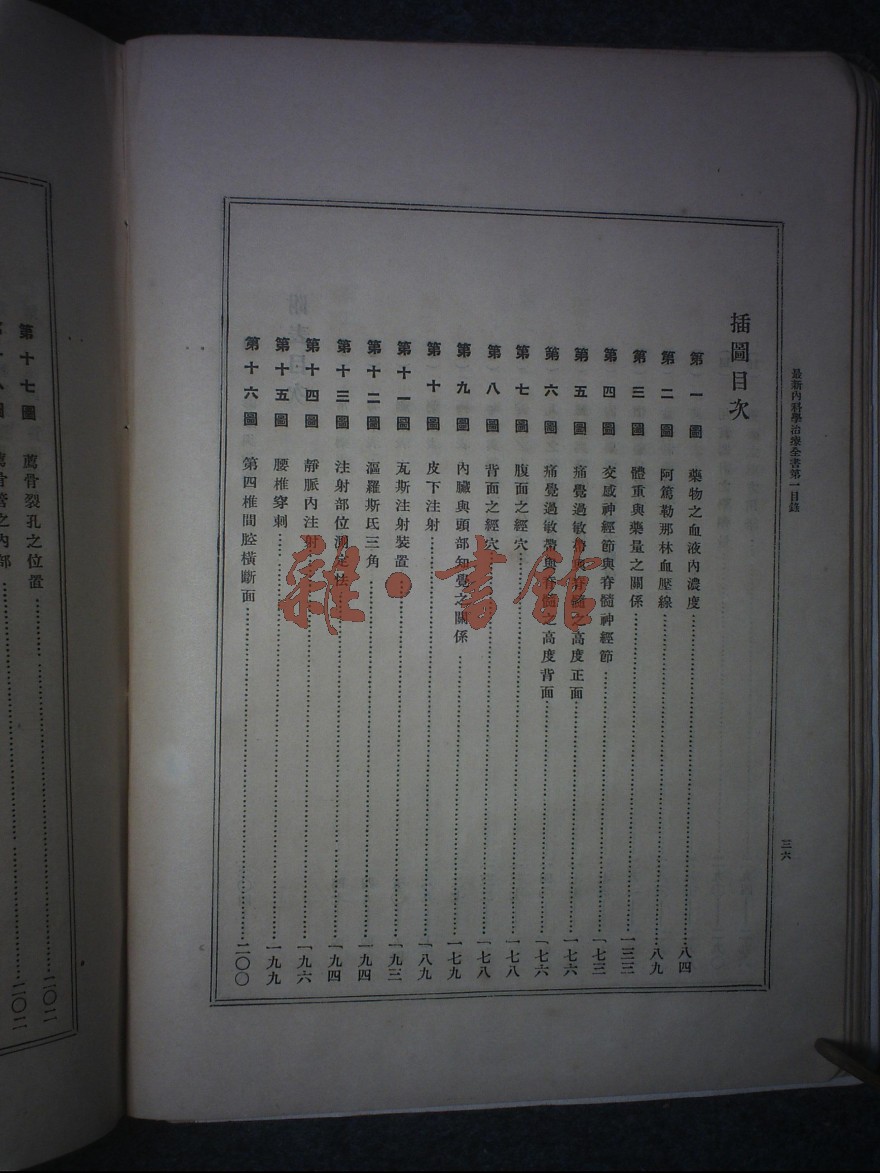 最新內科學治療全書第一目錄
三六
插圖目次
第一圖 藥物之血液內濃度 八四
第二圖 阿篤勒那林血壓線 八九
第三圖 體重與藥量之關係 一三三
第四圖 交感神經節與脊髓神經節 一七三
第五圖 痛覺過敏帶與脊髓之高度正面 一七六
第六圖 痛覺過敏帶與脊髓之高度背面 一七六
第七圖 腹面之經穴 一七八
第八圖 背面之經穴 一七八
第九圖 內臟與頭部知覺之關係 一七九
第十圖 皮下注射 一八九
第十一圖 瓦斯注射裝置 一九三
第十二圖 漚羅斯氏三角 一九四
第十三圖 注射部位測定法 一九四
第十四圖 靜脈內注射 一九六
第十五圖 腰椎穿刺 一九九
第十六圖 第四椎間腔橫斷面 二〇〇
第十七圖 薦骨裂孔之位置 二〇二
第十八圖 薦骨管之內部 二〇二
雜·書館